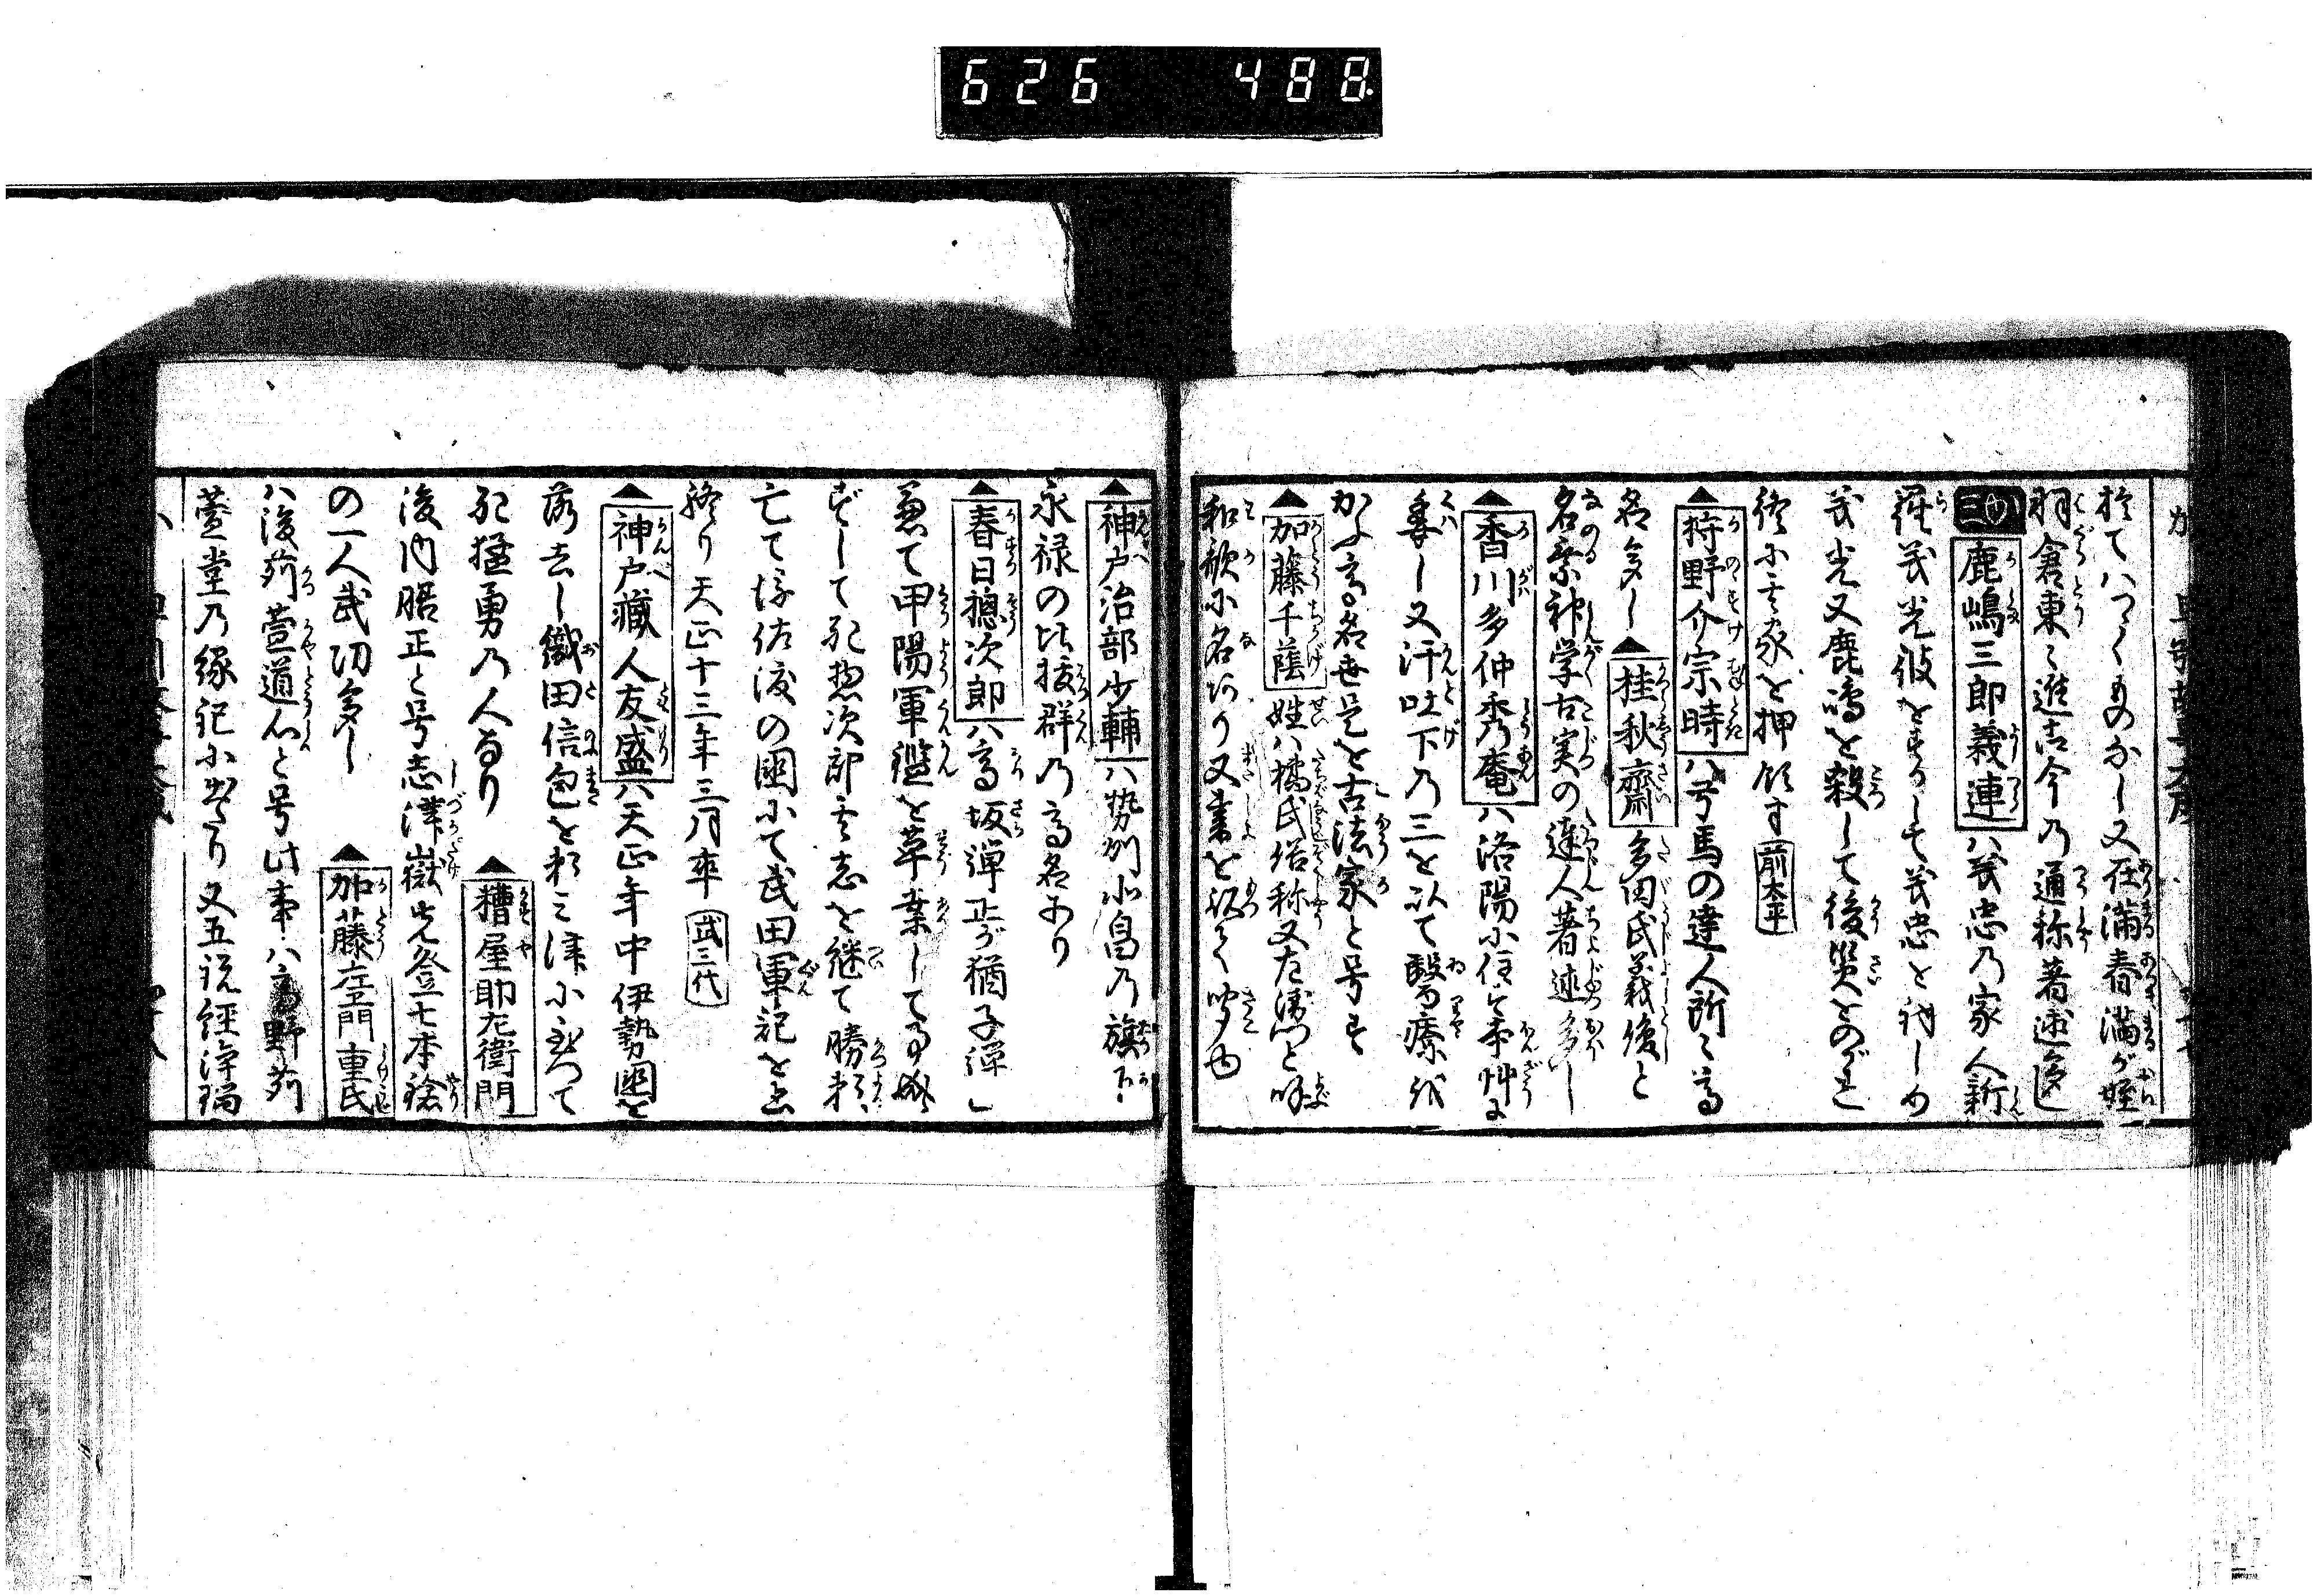 626 488
於てハつくものなし又在満春満が姪
羽倉東之進古今の通称著述多し
鹿嶋三郎義連ハ義忠乃家人新
羅義光彼をすかして義忠を討しめ
義光又鹿嶋を殺して後災をのがれ
終に其家を押領す 前太平
▲狩野介宗時ハ弓馬の達人所々高
名多し ▲桂秋齋 多田氏義俊と
名乗神学古実の達人著述多し
▲香川多仲秀庵ハ洛陽に住す本艸に
委し又汗吐下乃三を以て醫療代
かふ高名世是を古法家と号す
▲加藤千蔭 姓ハ橘氏俗称又左衛門と呼
和歌に名あり又書を能く
▲神戸治部少輔ハ勢州北畠乃旗下
永禄の比抜群乃高名あり
▲春日惣次郎ハ高坂弾正が猶子弾正
兼て甲陽軍鑑を草案して事終
ずして死惣次郎其志を継て勝頼
亡て後佐渡の国にて武田軍記を
終り天正十三年三月卒 武三代
▲神戸蔵人友盛ハ天正年中伊勢国を
落去し織田信包を頼
死猛勇乃人なり ▲糟屋助左衛門
後内膳正と号志津嶽先登七本鎗
の一人武功多し ▲加藤左エ門重氏
ハ後苅萱道心と号此事ハ高野苅
萱堂乃縁記に出たり又五説経浄瑠